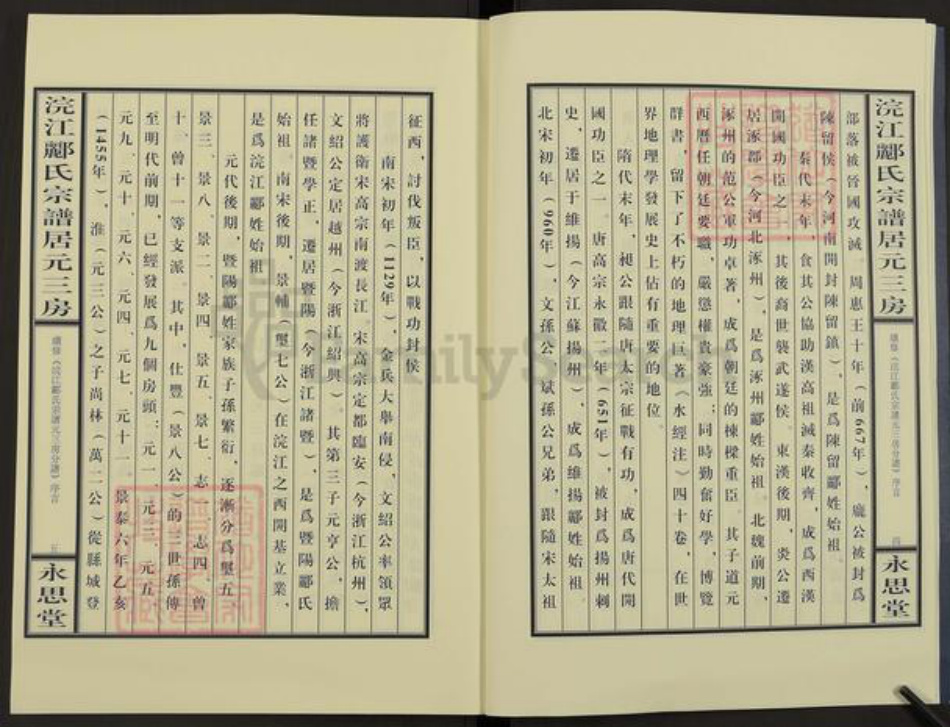 浣江酈氏宗譜居元三房
續修《浣江酈氏宗譜元三房分譜》序言
四
永思堂
部落被晉國攻滅。周惠王十年（前667年），龐公被封爲
陳留侯（今河南開封陳留鎮），是爲陳留酈姓始祖。
秦代末年，食其公協助漢高祖滅秦收齊，成爲西漢
開國功臣之一，其後裔世襲武遂侯。東漢後期，炎公遷
居涿郡（今河北涿州），是爲涿州酈姓始祖。北魏前期，
涿州的范公軍功卓著，成爲朝廷的棟樑重臣。其子道元
西曆任朝廷要職，嚴懲權貴豪強；同時勤奮好學，博覽
群書，留下了不朽的地理巨著《水經注》四十卷，在世
界地理學發展史上佔有重要的地位。
隋代末年，昶公跟隨唐太宗征戰有功，成爲唐代開
國功臣之一。唐高宗永徽二年（651年），被封爲揚州刺
史，遷居于維揚（今江蘇揚州），成爲維揚酈姓始祖。
北宋初年（960年），文孫公、斌孫公兄弟，跟隨宋太祖
征西，討伐叛臣，以戰功封侯。
南宋初年（1129年），金兵大舉南侵，文紹公率領眾
將護衛宋高宗南渡長江。宋高宗定都臨安（今浙江杭州），
文紹公定居越州（今浙江紹興）。其第三子元亨公，擔
任諸暨學正，遷居暨陽（今浙江諸暨），是爲暨陽酈氏
始祖。南宋後期，景輔（堅七公）在浣江之西開基立業，
是爲浣江酈姓始祖。
元代後期，暨陽酈姓家族子孫繁衍，逐漸分爲堅五、
景三、景八、景二、景四、景五、景七、志一、志四、曾
十、曾十一等支派。其中，仕豐（景八公）的三世孫傳
至明代前期，已經發展爲九個房頭：元一、元三、元五、
元九、元十、元六、元四、元七、元十一。景泰六年乙亥
（1455年），淮（元三公）之子尚林（萬二公）從縣城登
浣江酈氏宗譜居元三房
續修《浣江酈氏宗譜元三房分譜》序言
五
永思堂
FamilySearch